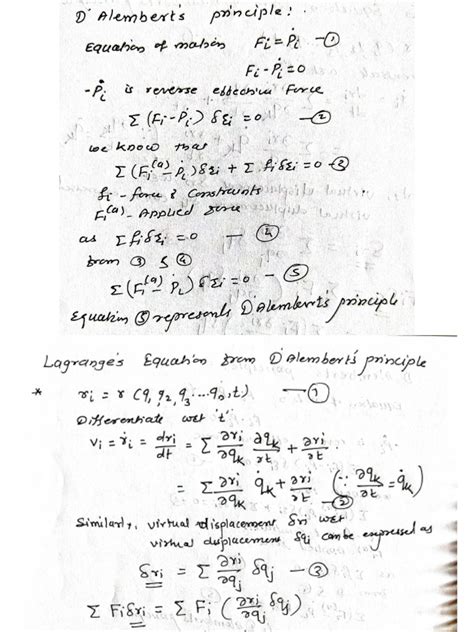 D'Alembert's principle:
Equation of motion Fᵢ = Ṗᵢ —①
Fᵢ - Ṗᵢ = 0
-Ṗᵢ is reverse effective Force
Σ (Fᵢ - Ṗᵢ) δεᵢ = 0 —②
we know that
Σ (Fᵢ⁽ᵃ⁾ - Ṗᵢ) δεᵢ + Σ fᵢ δεᵢ = 0 —③
fᵢ - force & Constraints
Fᵢ⁽ᵃ⁾ - Applied force
as Σ fᵢ δεᵢ = 0 — ④
from ③ & ④
Σ (Fᵢ⁽ᵃ⁾ - Ṗᵢ) δεᵢ = 0 — ⑤
Equation ⑤ represents D'Alembert's principle
Lagrange's Equation from D'Alembert's principle
* rᵢ = r (q₁ q₂ q₃ ... qₙ, t) —①
Differentiate wrt 't'
vᵢ = ṙᵢ = drᵢ/dt = Σ ∂rᵢ/∂qₖ ∂qₖ/∂t + ∂rᵢ/∂t
= Σ ∂rᵢ/∂qₖ q̇ₖ + ∂rᵢ/∂t (∵ ∂qₖ/∂t = q̇ₖ) —②
Similarly, virtual displacement δrᵢ wrt
virtual displacement δqⱼ can be expressed as
δrᵢ = Σ ∂rᵢ/∂qⱼ δqⱼ —③
Σ Fᵢ δrᵢ = Σ Fᵢ (∂rᵢ/∂qⱼ δqⱼ)